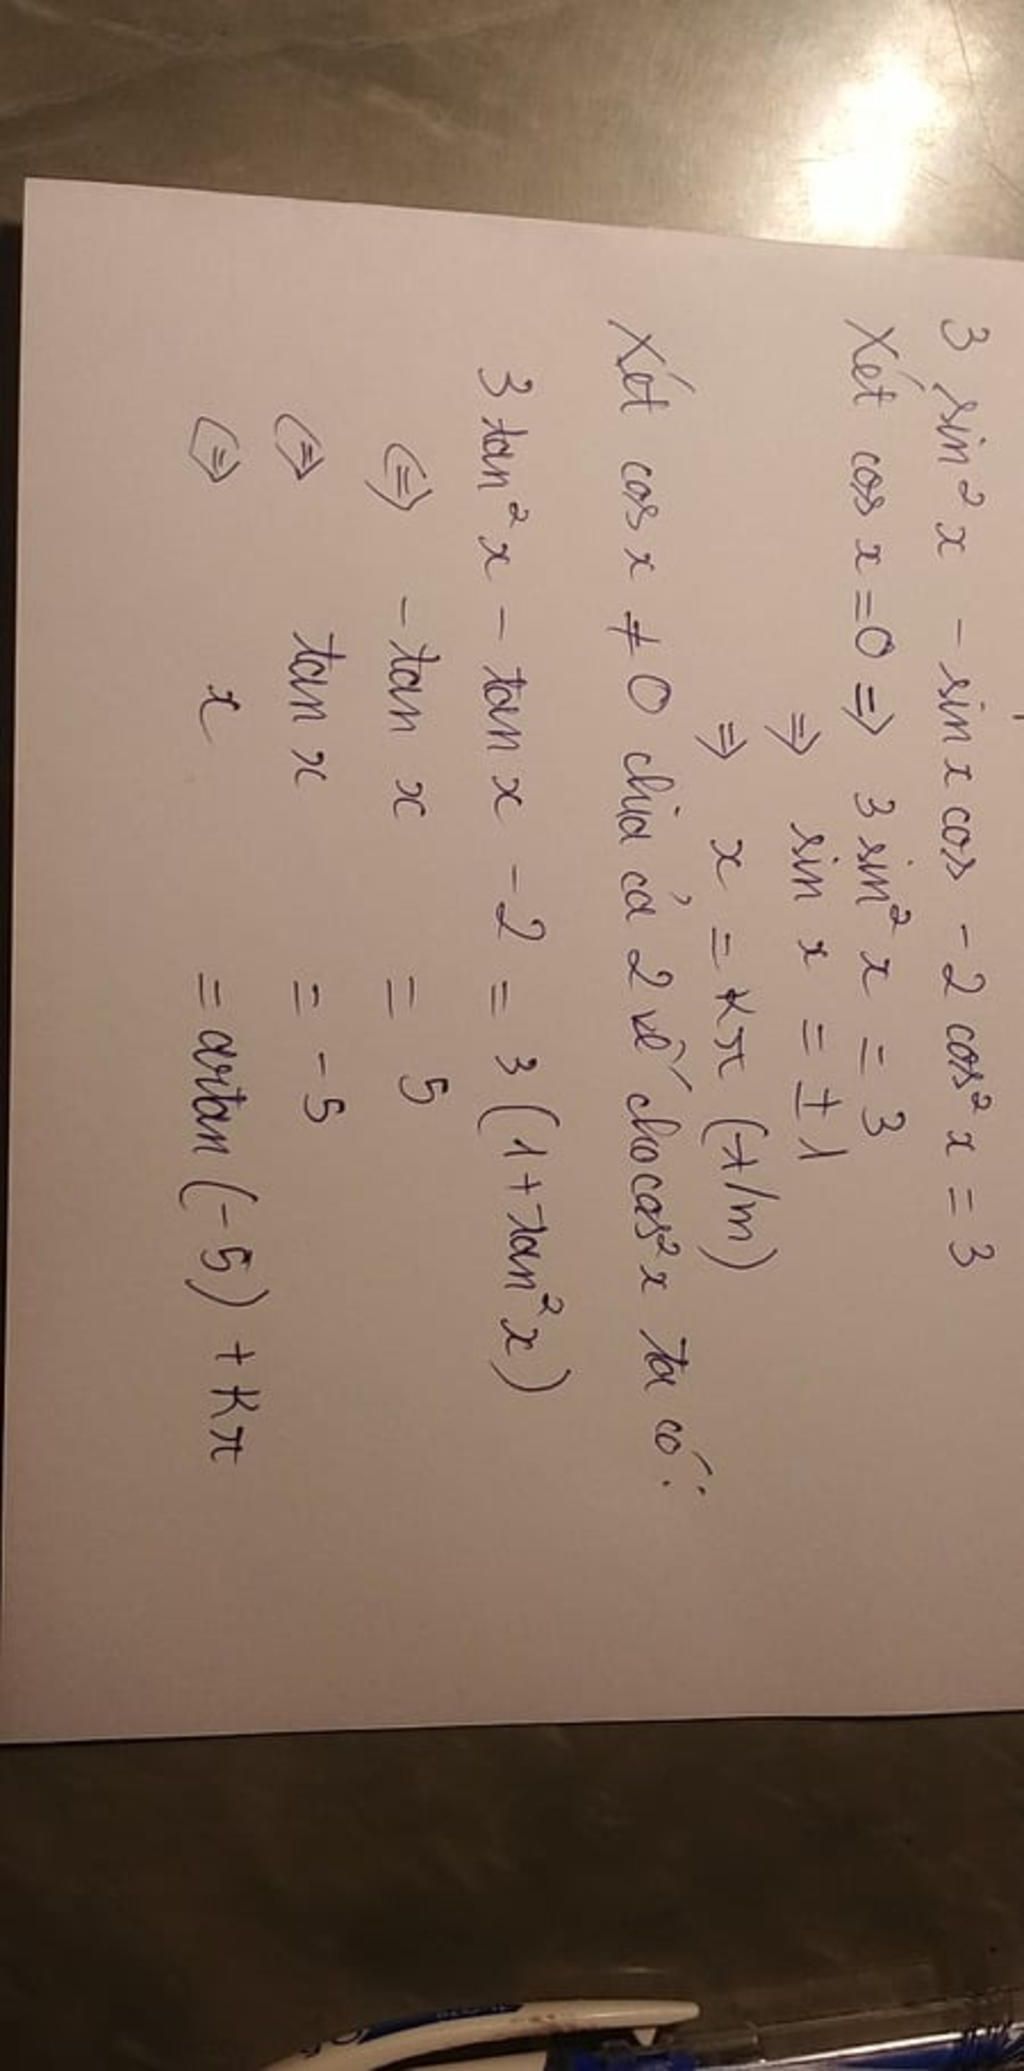 3 sin² x - sin x cos - 2 cos² x = 3
Xét cos x = 0 => 3 sin² x = 3
=> sin x = ± 1
=> x = kπ (t/m)
Xét cos x ≠ 0 chia cả 2 vế cho cos² x ta có:
3 tan² x - tan x - 2 = 3 (1 + tan² x)
<=> - tan x = 5
<=> tan x = -5
<=> x = artan (-5) + kπ